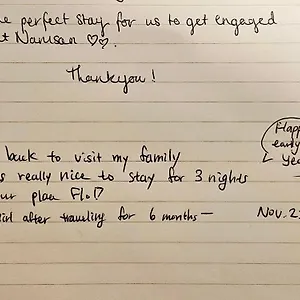 e perfect stay for us to get engaged
t Namsan ♡♡.
Thankyou!
back to visit my family
s really nice to stay for 3 nights
ur place Flo♡
after travelling for 6 months—
Happ
early
Yea
Nov. 2